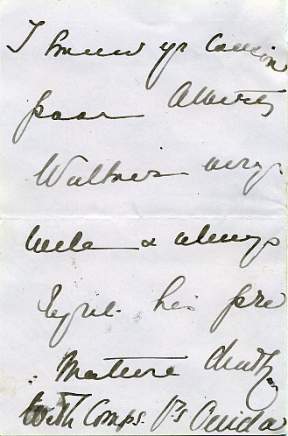 I knew yr cousin
poor Alberts
Waltner very
well & always
regret his pre
mature death
With Comps. Ps Ouida